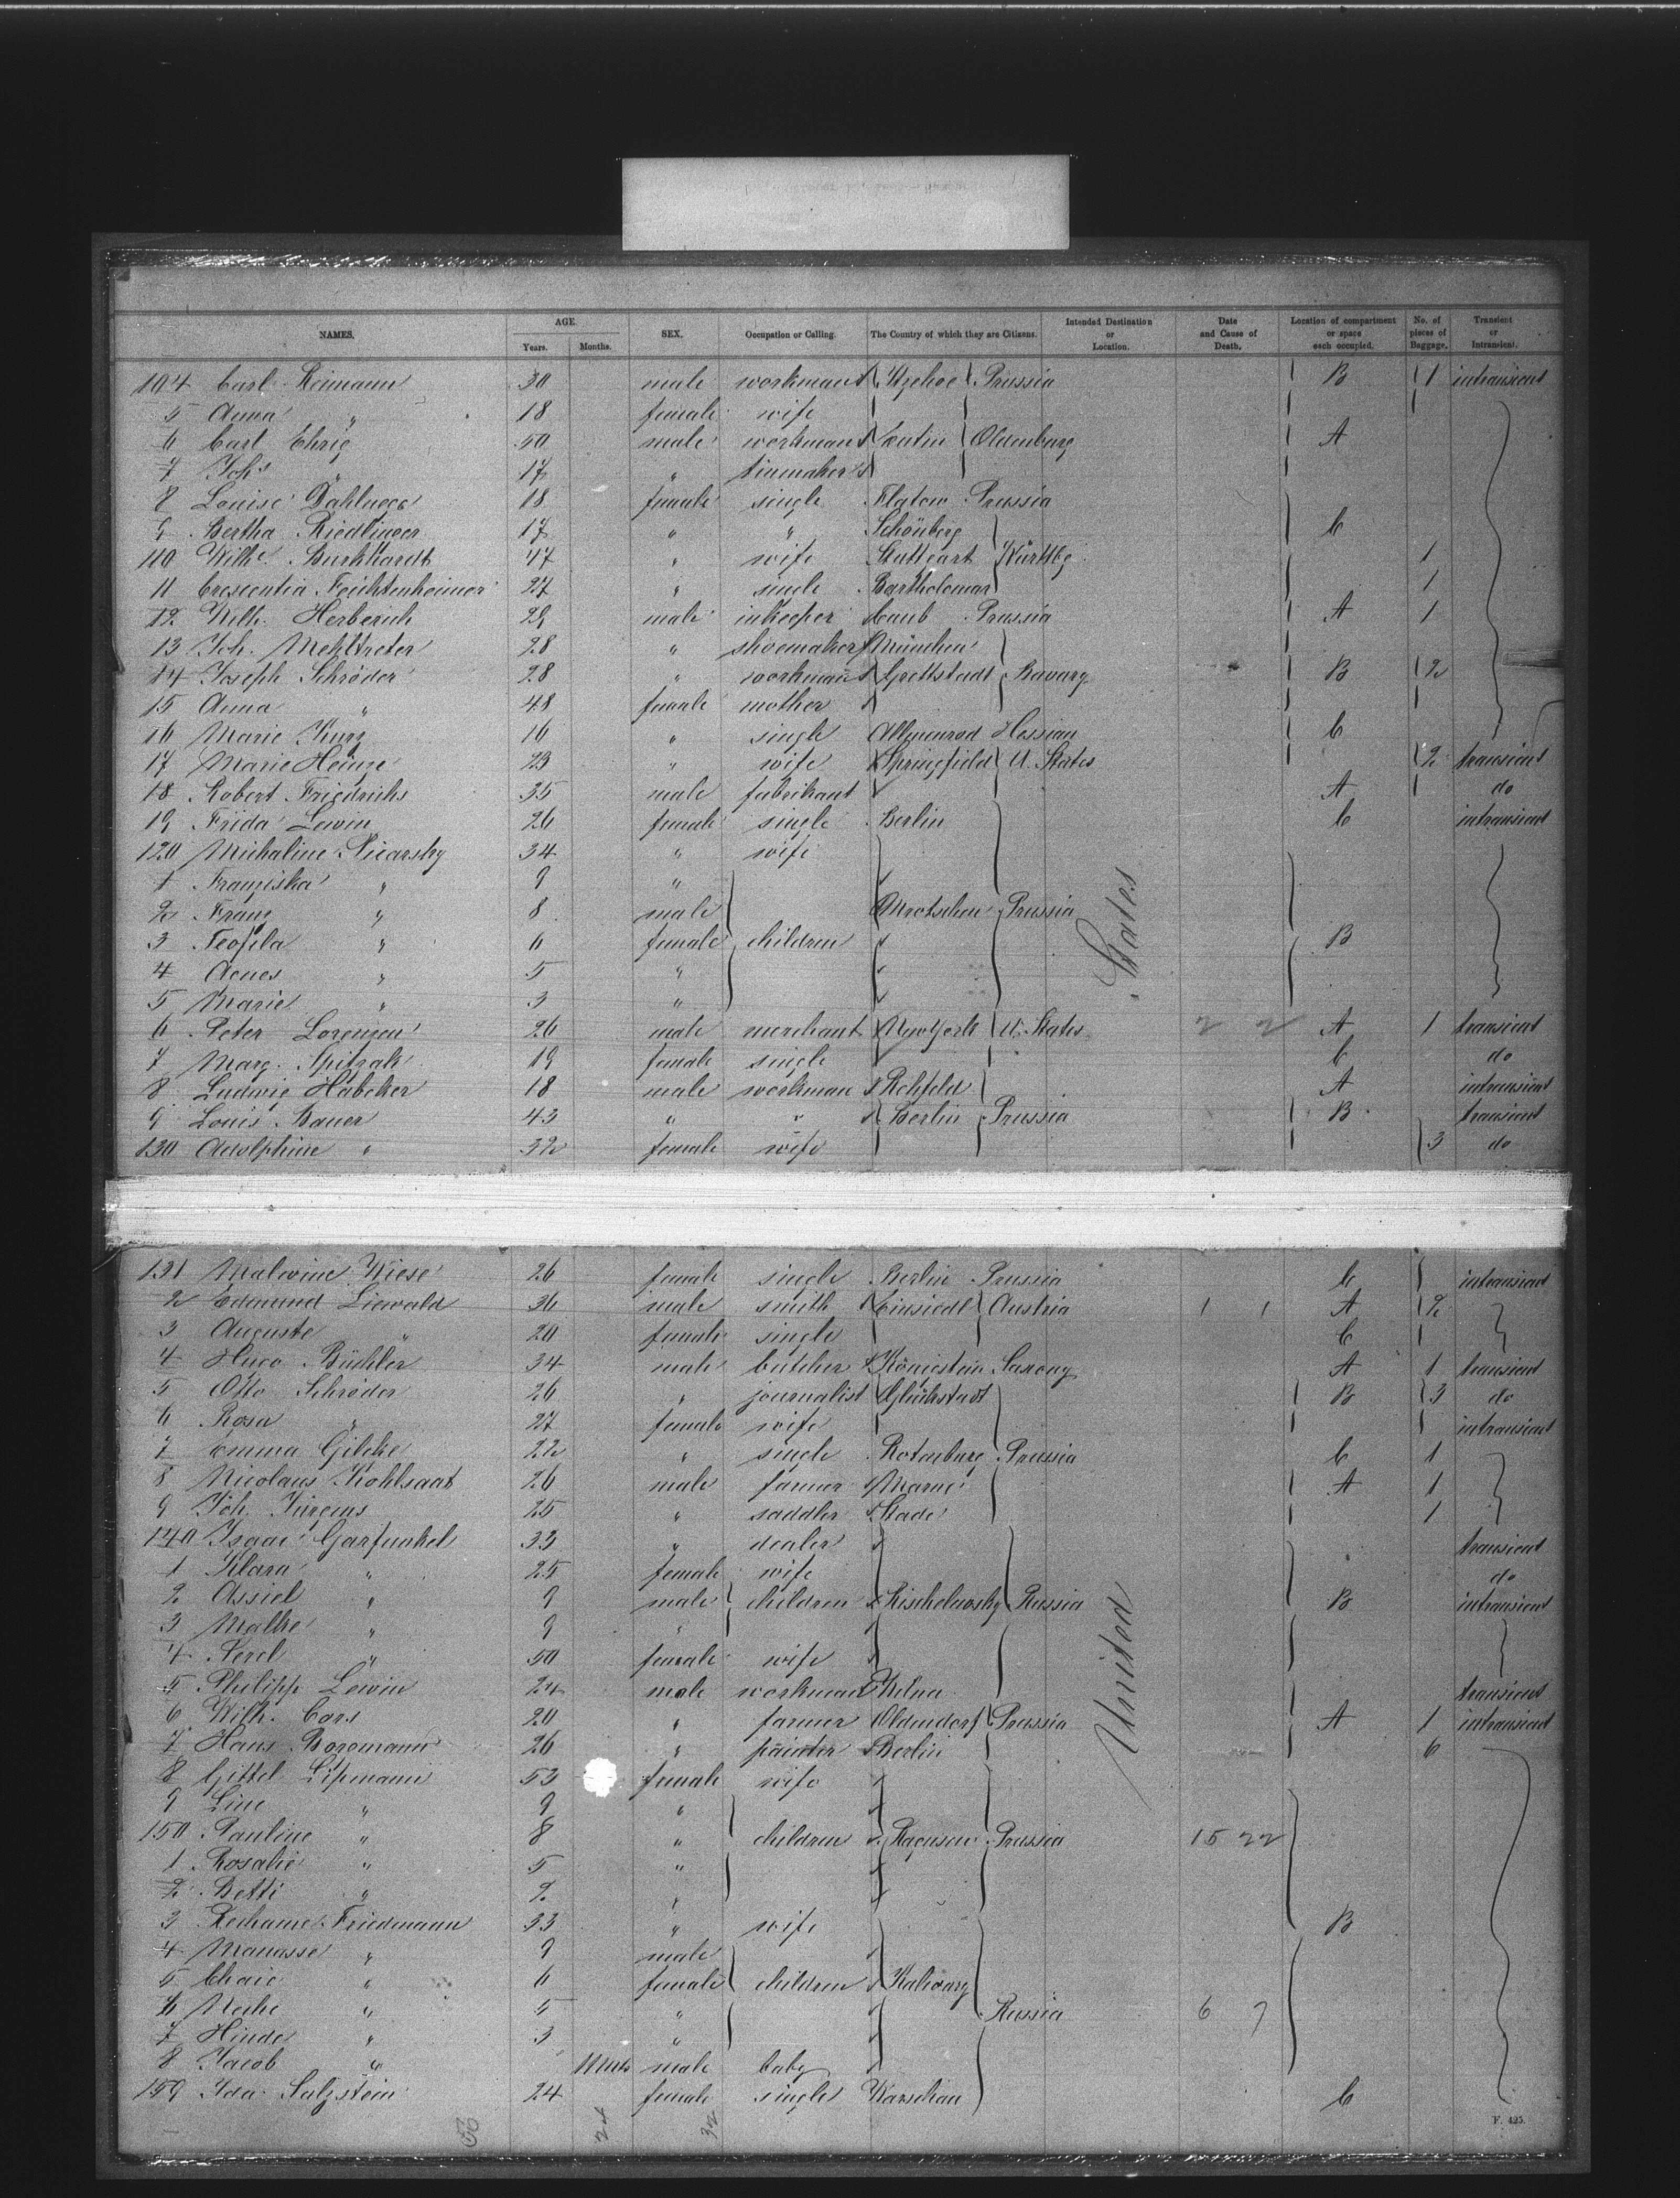 NAMES. AGE. Years. Months. SEX. Occupation or Calling. The Country of which they are Citizens. Intended Destination or Location. Date and Cause of Death. Location of compartment or space each occupied. No. of pieces of Baggage. Transient or Intransient.
104 Carl Reimann 30 male workman Itzehoe Prussia B 1 intransient
5 Anna " 18 female wife
6 Carl Ehrig 50 male workman Eutin Oldenburg A
7 Johs " 17 " tinmaker
8 Louise 18 female single Flatow Prussia
9 Bertha Riedlinger 17 " " Schönberg C
110 Wilhe. Burkhardt 47 " wife Stuttgart Württbg 1
11 Crescentia Feichtenheimer 27 " single Bartholomae 1
12 Wilh. Herberich 29 male inkeeper Caub Prussia A 1
13 Joh. Mehltreter 28 " shoemaker München
14 Joseph Schröder 28 " workman Grettstadt Bavary B 2
15 Anna " 48 female mother
16 Marie Kurz 16 " single Allmenrod Hessian C
17 Marie Heinze 23 " wife Springfield U. States 2 transient
18 Robert Friedrichs 35 male fabrikant A do
19 Frida Lewin 26 female single Berlin C intransient
120 Michaline 34 " wife
1 Franziska " 9 "
2 Franz " 8 male Mrotschen Prussia
3 Teofila " 6 female children B
4 Agnes " 5 "
5 Marie " 3 "
6 Peter Lorenzen 26 male merchant New York U. States 2 2 A 1 transient
7 Marg. 19 female single C do
8 Ludwig Häbcker 18 male workman Rehfeld A intransient
9 Louis Bauer 43 " " Berlin Prussia B transient
130 Adolphine " 32 female wife 3 do
131 Malwine Wiese 26 female single Berlin Prussia C intransient
2 Edmund Liewald 36 male smith Einsiedl Austria 1 1 A 2
3 Auguste " 20 female single C
4 Hugo Büchler 34 male butcher Königstein Saxony A 1 transient
5 Otto Schröder 26 " journalist Glückstadt B 3 do
6 Rosa " 27 female wife intransient
7 Emma Gilcke 22 " single Rotenburg Prussia C 1
8 Nicolaus Kohlsaat 26 male farmer Marne A 1
9 Joh. Jürgens 25 " saddler Stade 1
140 Isaac Garfunkel 33 " dealer transient
1 Klara " 25 female wife do
2 Assiel " 9 male children Russia B intransient
3 Malke " 9 "
4 Serel " 50 female wife
5 Philipp Lewin 24 male workman Wilna transient
6 Wilh. Cors 20 " farmer Oldendorf Prussia A 1 intransient
7 Hans Borgmann 26 " painter Berlin 6
8 Gittel Lipmann 53 female wife
9 Line " 9 "
150 Pauline " 8 " children Ragusen Prussia 15 22
1 Rosalie " 5 "
2 Betti " 2 "
3 Friedmann 33 " wife B
4 Manasse " 9 male
5 Chaie " 6 female children Kalwary
6 " 5 " Russia 6 7
7 Hinde " 3 "
8 Jacob " male baby
159 Ida Salzstein 24 female single Warschau C
United States
24
32
F. 425.